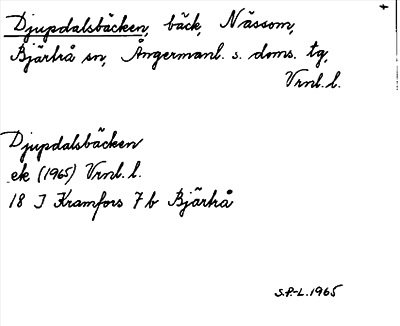 Djupdalsbäcken, bäck, Nässom,
Bjärtrå sn, Ångermanl. s. doms. tg,
Vrnl. l.
Djupdalsbäcken
ek (1965) Vrnl. l.
18 I Kramfors 7 b Bjärtrå
S.P.-L. 1965